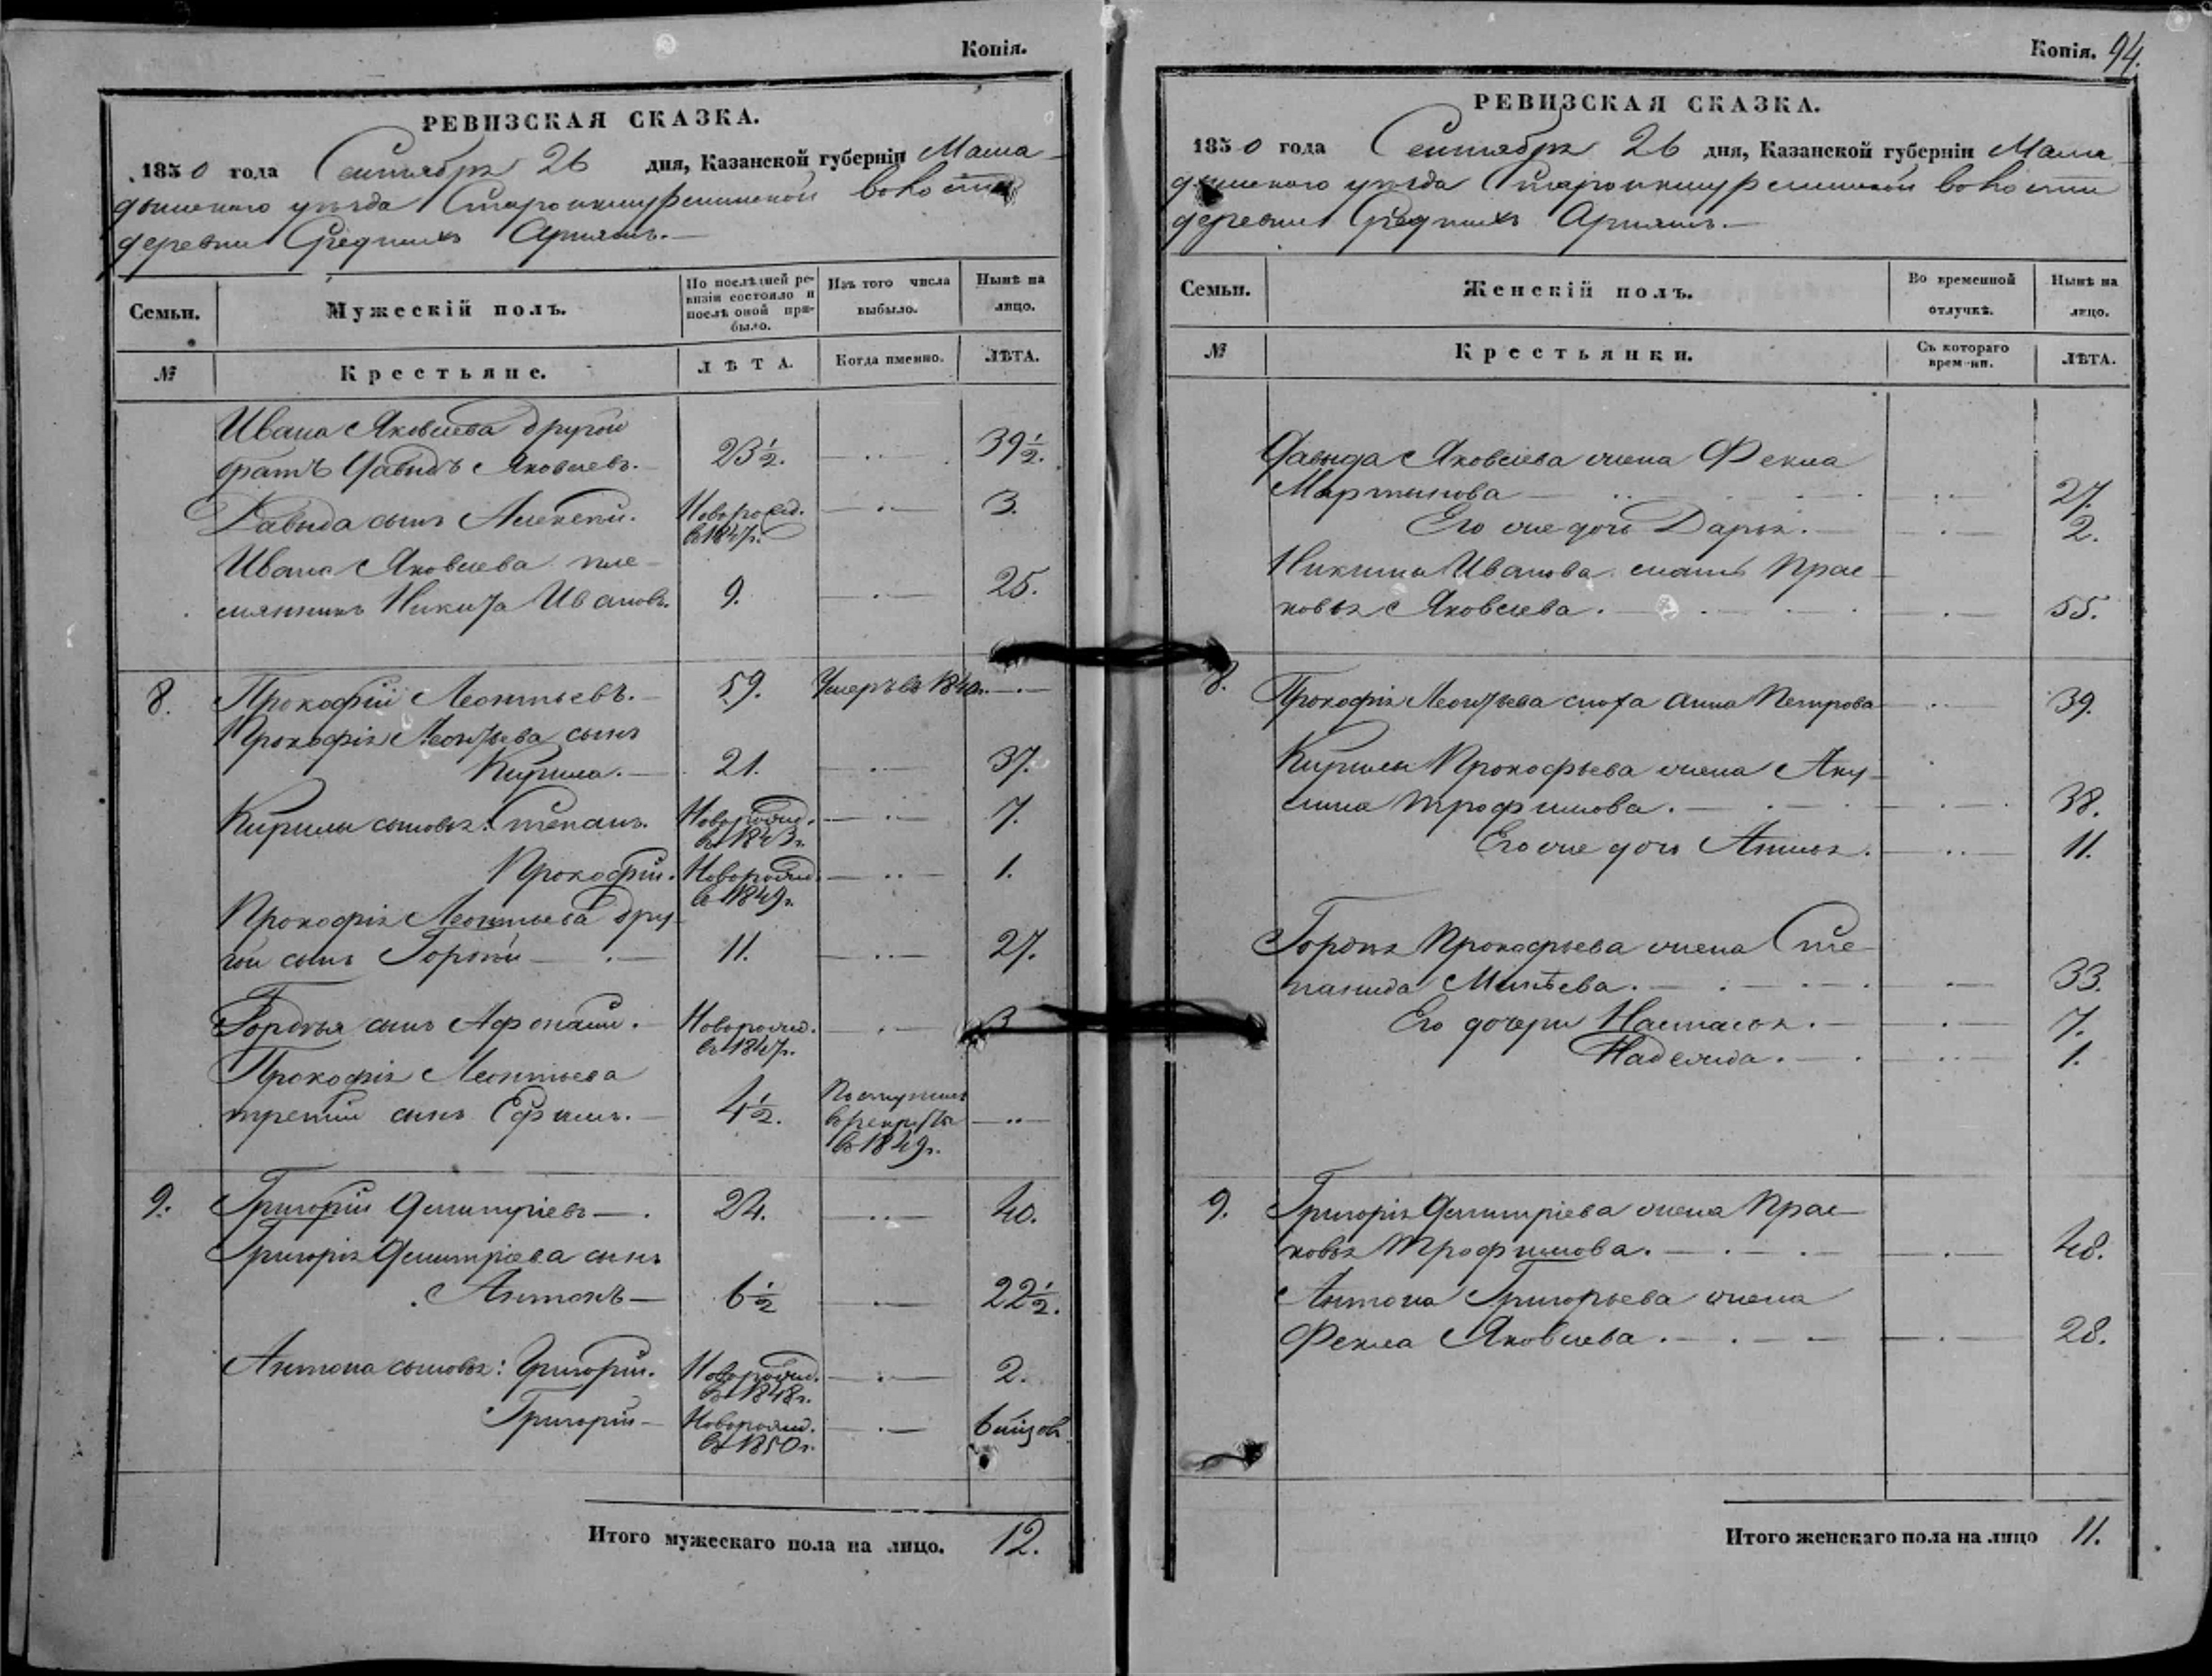 Копія.
РЕВИЗСКАЯ СКАЗКА.
1850 года Сентября 26 дня, Казанской губерніи Мама-
дышскаго уѣзда волости
деревни Среднихъ
Семьи.
Мужескій полъ.
По послѣдней ре-
визіи состояло и
послѣ оной при-
было.
Изъ того числа
выбыло.
Нынѣ на
лицо.
№
Крестьяне.
ЛѢТА.
Когда именно.
ЛѢТА.
Ивана Яковлева другой
братъ Давыдъ Яковлевъ.— 23½. 39½.
Давыда сынъ Алексѣй. Новорожд. 3.
въ 1847г.
Ивана Яковлева пле-
мянникъ Никита Ивановъ. 9. 25.
8. Прокофій Леонтьевъ.— 59. Умеръ въ 1840г.
Прокофія Леонтьева сынъ
Кирила.— 21. 37.
Кирилы сыновья: Степанъ. Новорожд. 7.
въ 1843г.
Прокофій. Новорожд. 1.
въ 1849г.
Прокофія Леонтьева дру-
гой сынъ Гордѣй— 11. 27.
Гордѣя сынъ Афонасій. Новорожд. 3
въ 1847г.
Прокофія Леонтьева
третій сынъ Ефимъ.— 4½. Поступилъ
в рекруты
въ 1849г.
9. Григорій Димитріевъ—. 24. 40.
Григорія Димитріева сынъ
Антонъ— 6½ 22½.
Антона сыновья: Григорій. Новорожд. 2.
въ 1848г.
Григорій— Новорожд. 6 мѣсяцовъ
въ 1850г.
Итого мужескаго пола на лицо. 12.
Копія. 94.
РЕВИЗСКАЯ СКАЗКА.
1850 года Сентября 26 дня, Казанской губерніи Мама-
дышскаго уѣзда волости
деревни Среднихъ
Семьи.
Женскій полъ.
Во временной
отлучкѣ.
Нынѣ на
лицо.
№
Крестьянки.
Съ котораго
времени.
ЛѢТА.
Давыда Яковлева жена Фекла
Мартынова— 27.
Его же дочь Дарья.— 2.
Никиты Иванова мать Прас-
ковья Яковлева. 55.
8. Прокофія Леонтьева сноха Анна Петрова 39.
Кирилы Прокофьева жена Аку-
лина Трофимова. 38.
Его же дочь Анна. 11.
Гордѣя Прокофьева жена Сте-
панида Минѣева. 33.
Его дочери Настасья. 7.
Надежда. 1.
9. Григорія Димитріева жена Прас-
ковья Трофимова. 48.
Антона Григорьева жена
Фекла Яковлева. 28.
Итого женскаго пола на лицо 11.